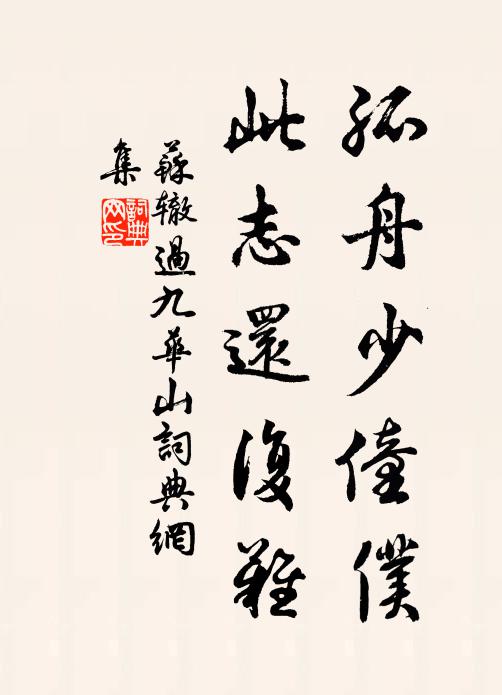 孤舟少僮僕
此志還復難
蘇辙過九華山詞典網
集
詞典
网印